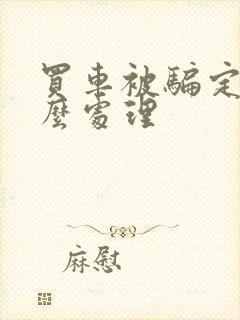 買車被騙定
麼處理
麻慰